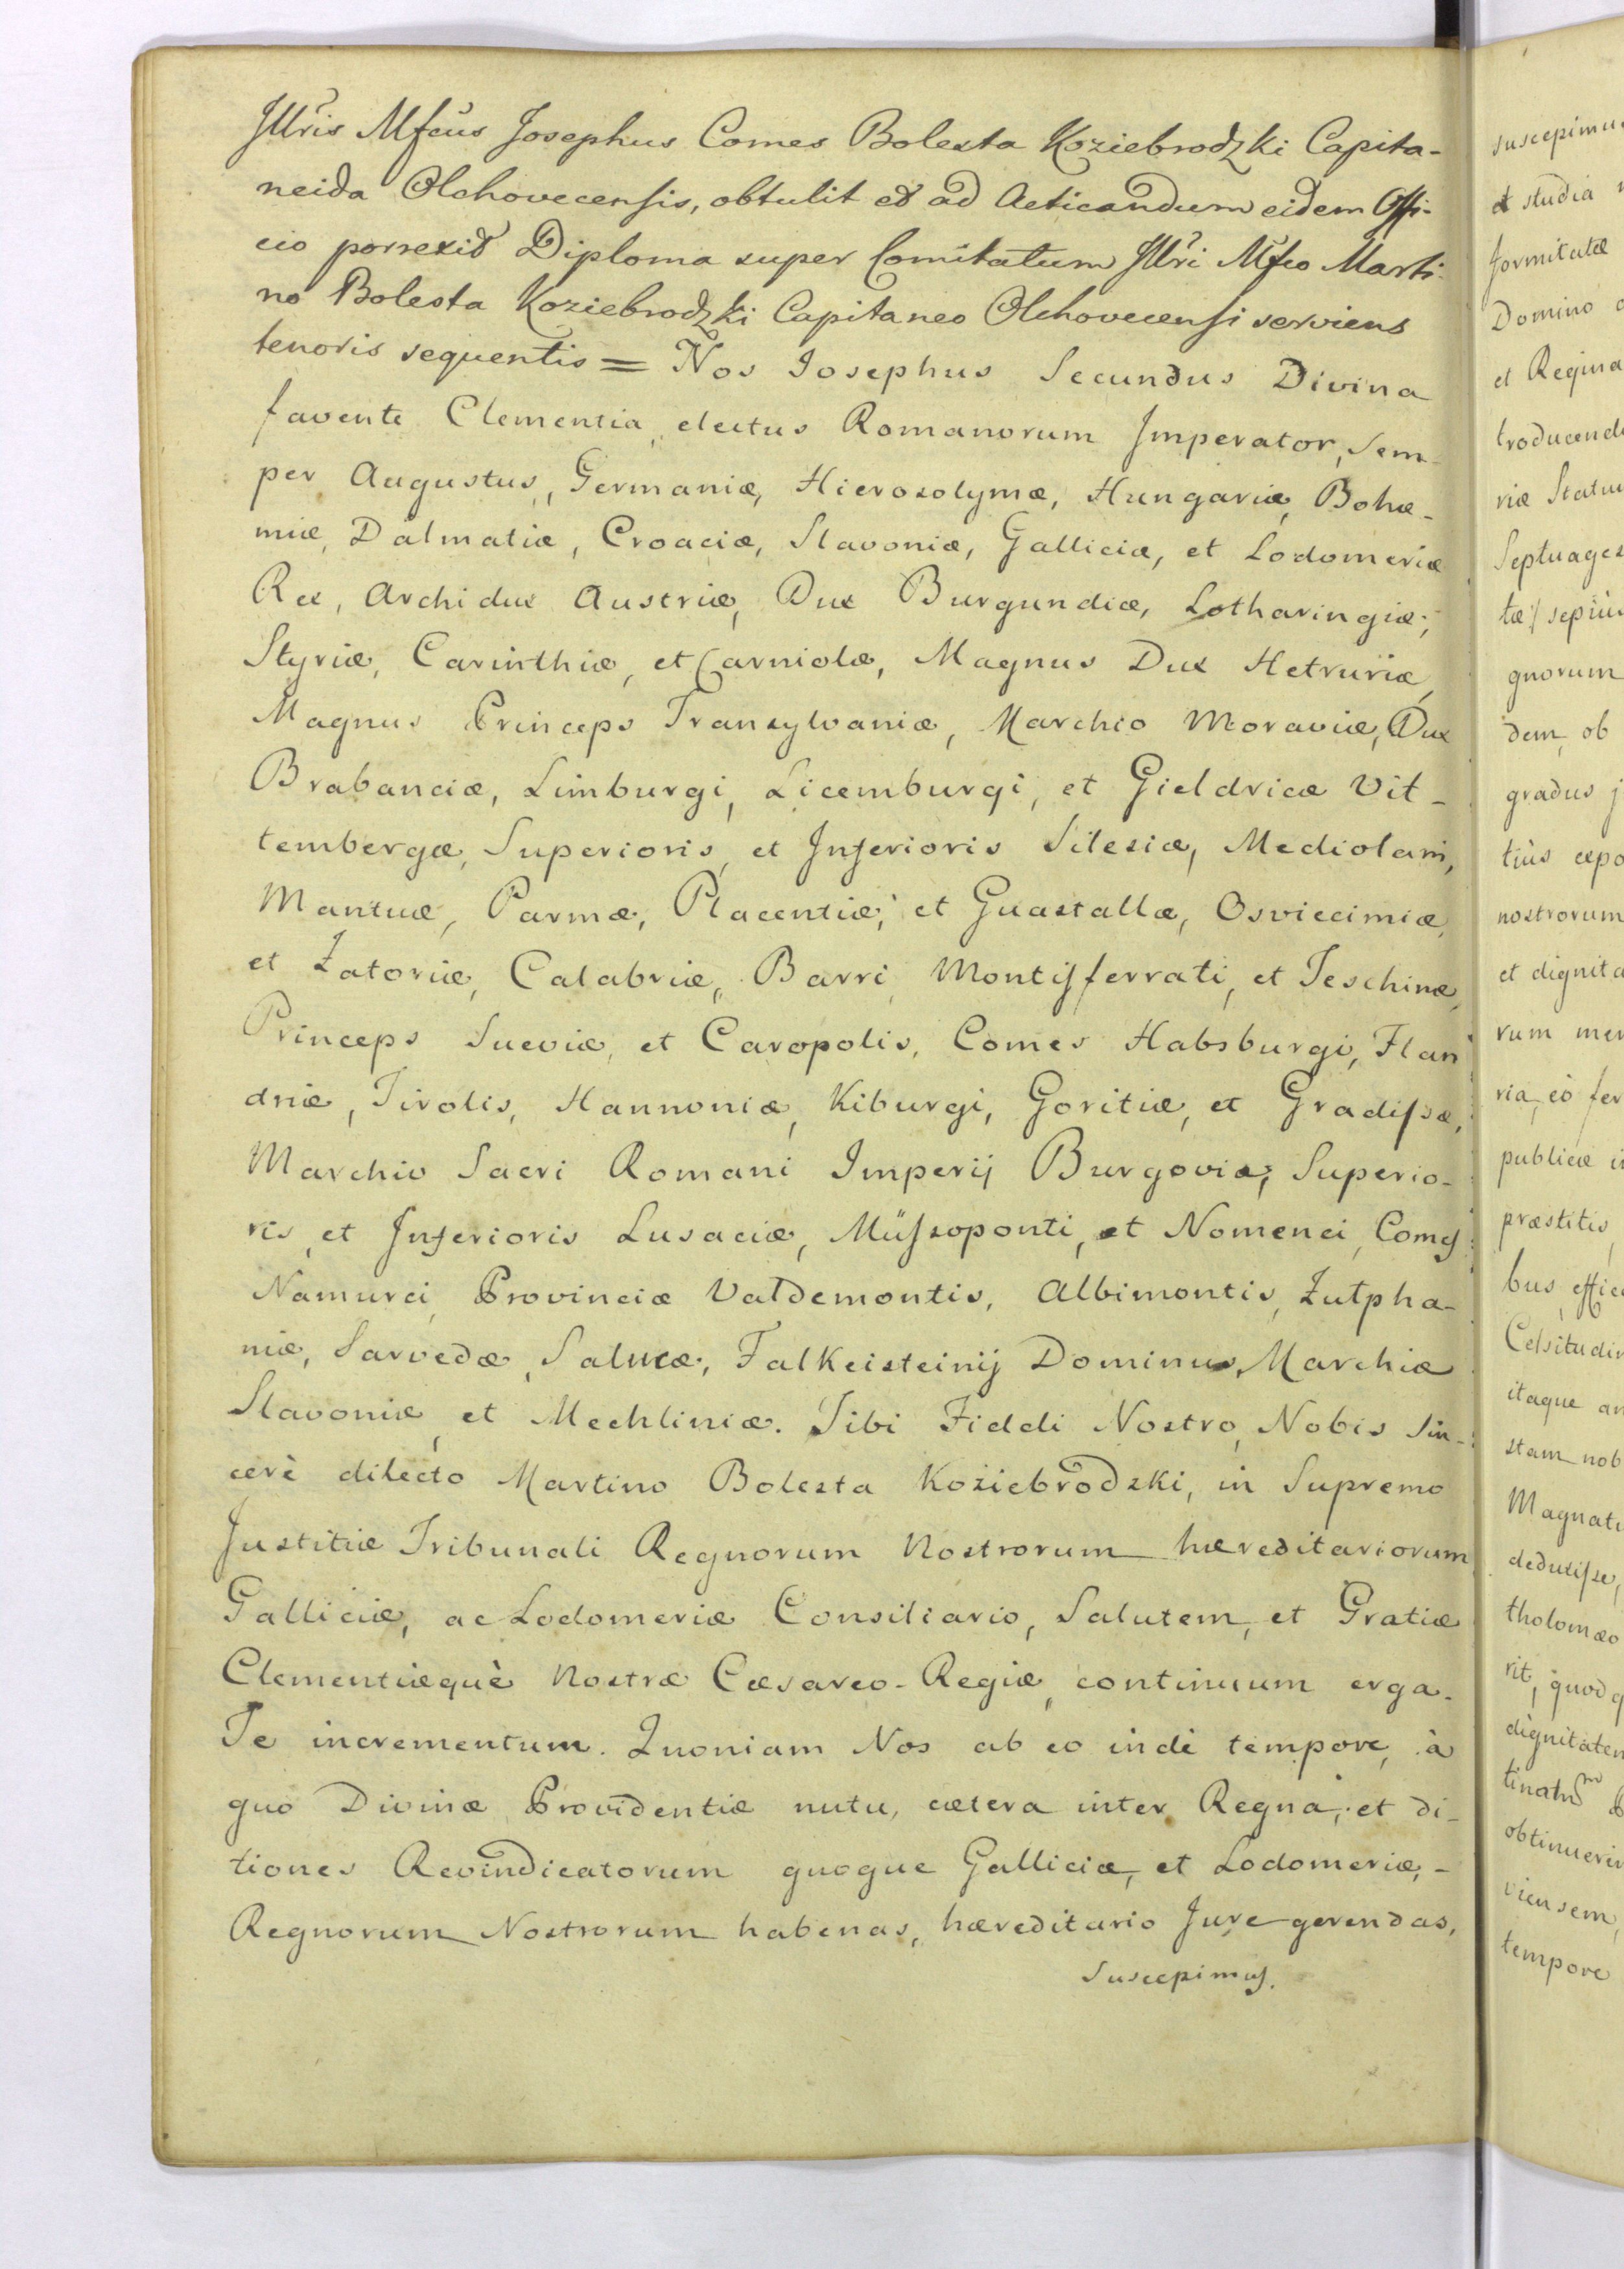 Illris Mfcus Josephus Comes Bolesta Koziebrodzki Capita-
neida Olchovecensis, obtulit et ad acticandum eidem Offi-
cio porrexit Diploma super Comitatum Illri Mfco Marti-
no Bolesta Koziebrodzki Capitaneo Olchovecensi serviens
tenoris sequentis = Nos Josephus Secundus Divina
favente Clementia, electus Romanorum Imperator, Sem-
per Augustus, Germaniæ, Hierosolymæ, Hungariæ, Bohæ-
miæ, Dalmatiæ, Croaciæ, Slavoniæ, Galliciæ, et Lodomeriæ
Rex, Archidux Austriæ, Dux Burgundiæ, Lotharingiæ,
Styriæ, Carinthiæ, et Carniolæ, Magnus Dux Hetruriæ,
Magnus Princeps Transylvaniæ, Marchio Moraviæ, Dux
Brabanciæ, Limburgi, Licemburgi, et Gieldricæ Vit-
tembergæ, Superioris, et Inferioris Silesiæ, Mediolani,
Mantuæ, Parmæ, Placentiæ, et Guastallæ, Osviecimiæ,
et Zatoriæ, Calabriæ, Barri, Montisferrati, et Teschinæ,
Princeps Sueviæ, et Caropolis, Comes Habsburgi, Flan
driæ, Tirolis, Hannoniæ, Kiburgi, Goritiæ, et Gradissæ,
Marchio Sacri Romani Imperij Burgoviæ, Superio-
ris, et Inferioris Lusaciæ, Müssoponti, et Nomenci, Comes
Namurci, Provinciæ Valdemontis, Albimontis, Zutpha-
niæ, Sarvedæ, Salucæ, Falkeisteinij Dominus, Marchiæ
Slavoniæ, et Mechliniæ. Tibi Fideli Nostro, Nobis Sin-
cerè dilecto Martino Bolesta Koziebrodzki, in Supremo
Justitiæ Tribunali Regnorum Nostrorum hæreditariorum
Galliciæ, ac Lodomeriæ Consiliario, Salutem, et Gratiæ
Clementiæquè Nostræ Cæsareo-Regiæ, continuum erga-
Te incrementum. Quoniam Nos ab eo indè tempore, à
quo Divinæ Providentiæ nutu, cætera inter Regna, et di-
tiones Revindicatorum quoque Galliciæ, et Lodomeriæ,-
Regnorum Nostrorum habenas, hæreditario Jure gerendas,
Suscepimus.
suscepimus
et studia
formitatæ
Domino
et Regina
troducend
riæ Statu
Septuages
tæ
gnorum
dem, ob
gradus
tiùs
nostrorum
et dignita
rum mer
ria, eò fer
publicæ
præstitis,
bus, effic
Celsitudin
itaque an
stam nob
Magnat
deduxisse,
tholomæo
rit, quod
dignitatem
obtinueri
viensem,
tempore